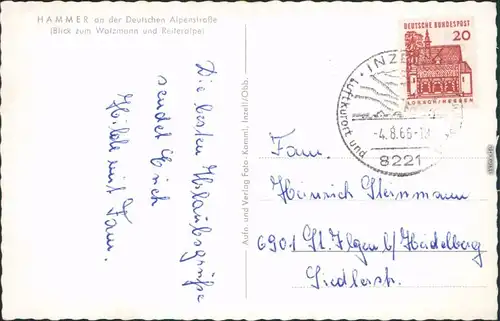 HAMMER an der Deutschen Alpenstraße
(Blick zum Watzmann und Reiteralpe)
Die besten Urlaubsgrüße
sendet Euch
Hilde mit Fam.
Aufn. und Verlag Foto-Kononi, Inzell/Obb.
DEUTSCHE BUNDESPOST
20
LORSCH/HESSEN
INZELL
Luftkurort und
-4.8.66-18
8221
Fam.
Heinrich Steinmann
6901 St. Ilgen b/Heidelberg
Siedlerstr.